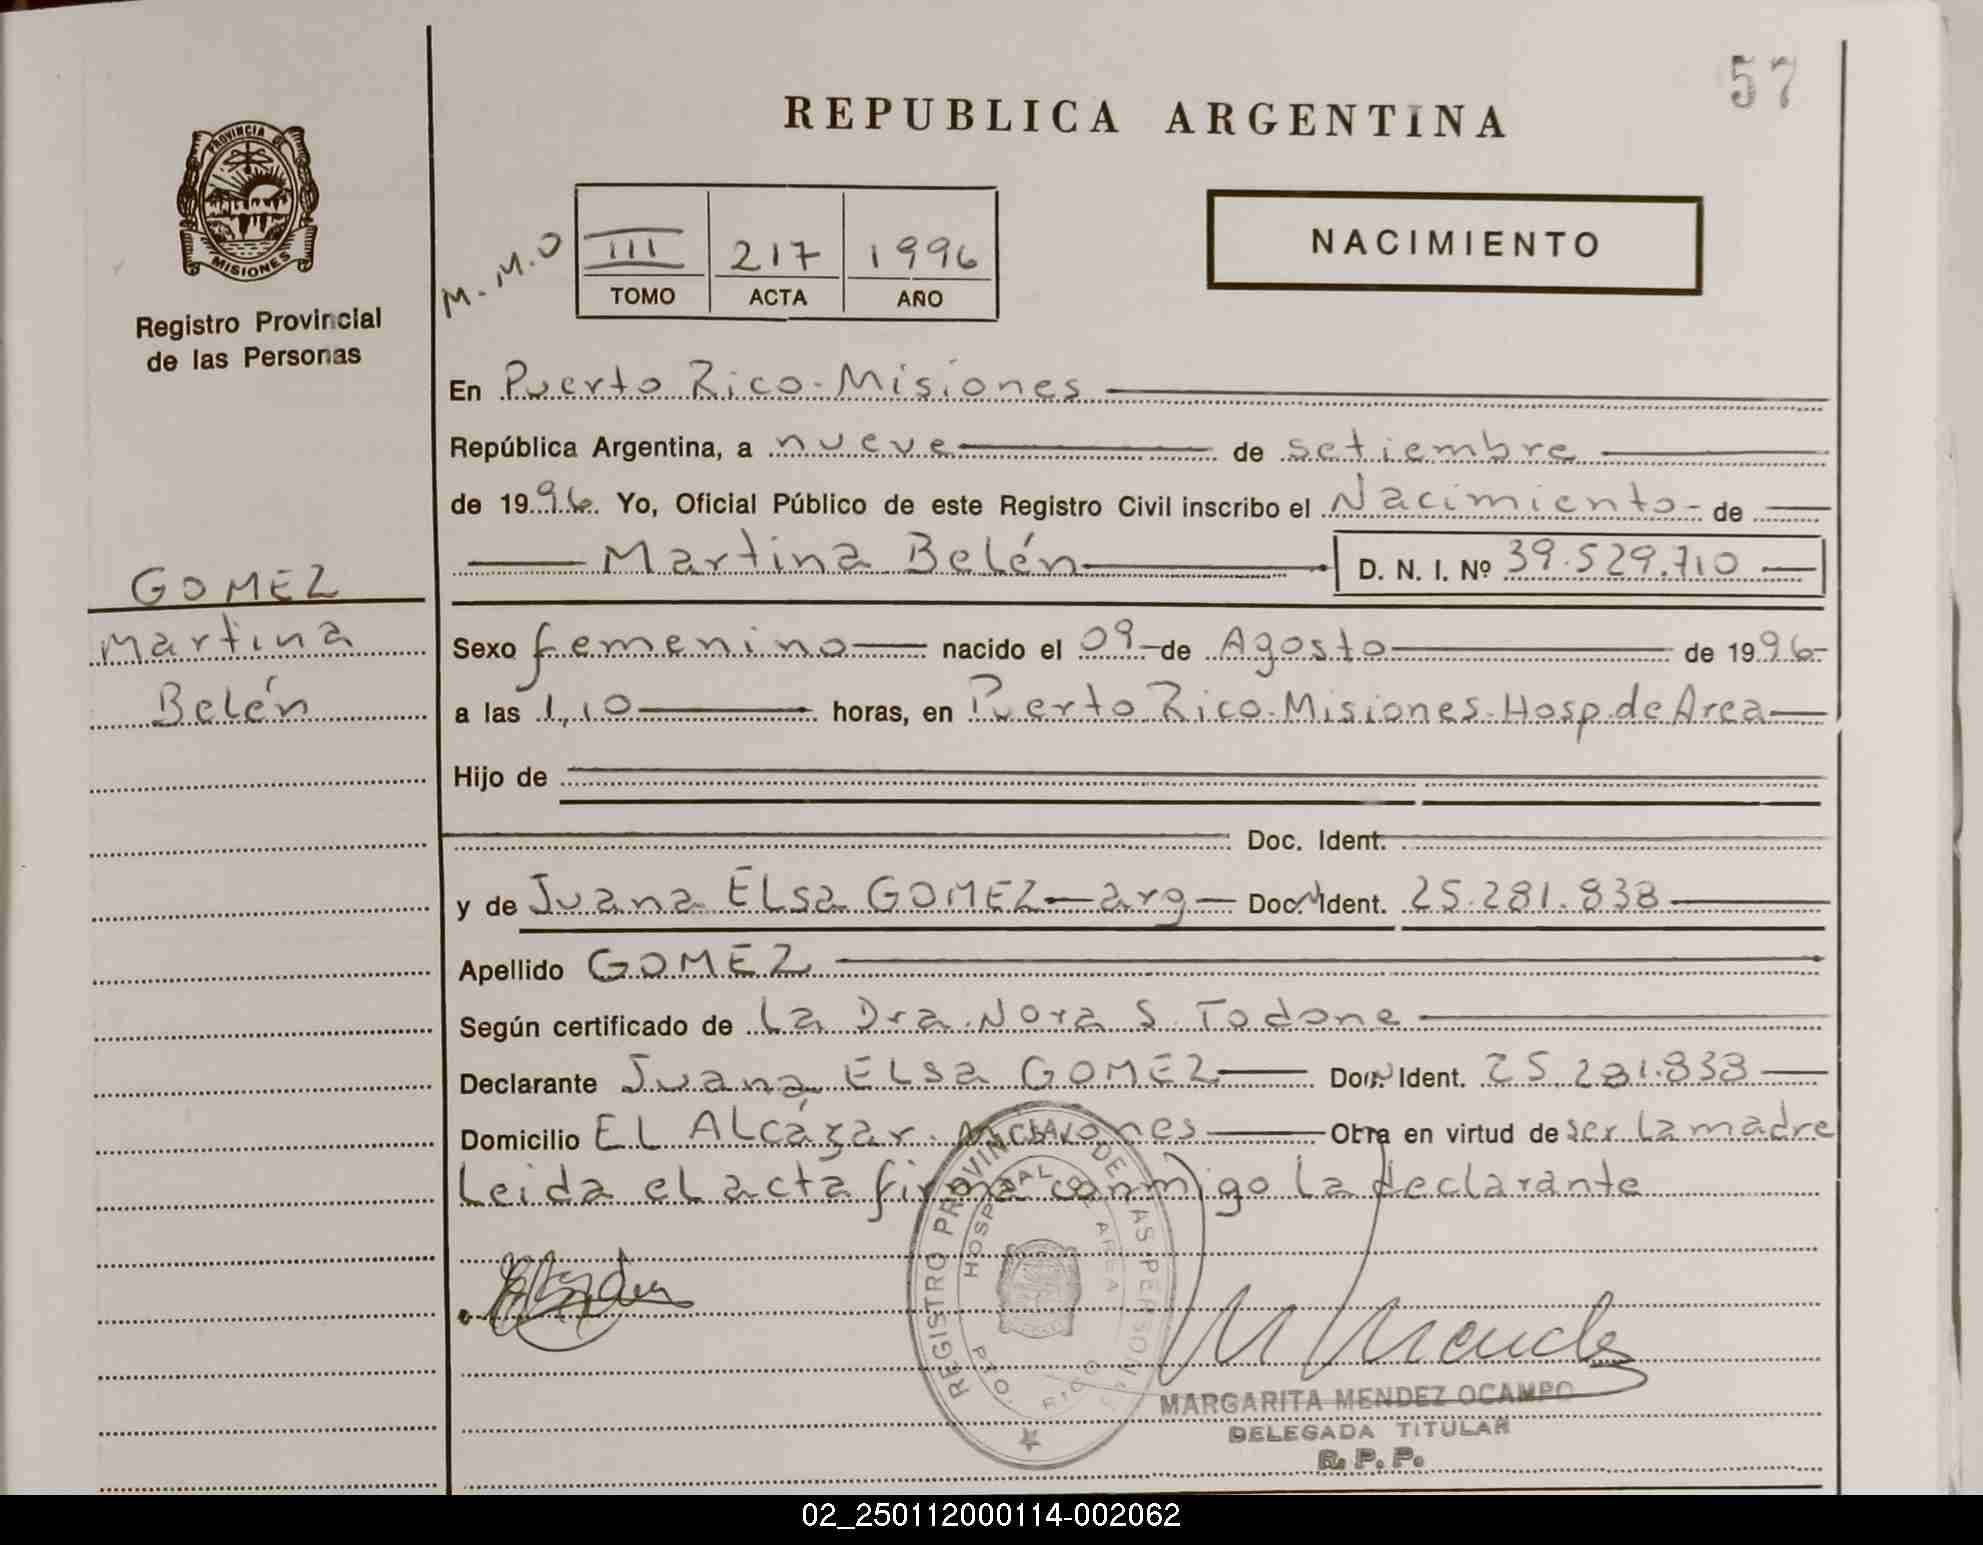 57
REPUBLICA ARGENTINA
PROVINCIA DE
MISIONES
Registro Provincial
de las Personas
M.M.O
III 217 1996
TOMO ACTA AÑO
NACIMIENTO
En Puerto Rico-Misiones
República Argentina, a nueve de setiembre
de 1996. Yo, Oficial Público de este Registro Civil inscribo el Nacimiento de
Martina Belén D. N. I. Nº 39.529.710
GOMEZ
Martina
Belén
Sexo femenino nacido el 09 de Agosto de 1996
a las 1,10 horas, en Puerto Rico-Misiones-Hosp.de Area
Hijo de
Doc. Ident.
y de Juana ELsa GOMEZ-arg Doc. Ident. 25.281.838
Apellido GOMEZ
Según certificado de La Dra.Nora S. Todone
Declarante Juana ELsa GOMEZ Doc. Ident. 25.281.838
Domicilio EL ALcázar. Misiones Obra en virtud de ser La madre
Leida eL acta firma conmigo La declarante
REGISTRO PROVINCIAL DE LAS PERSONAS
HOSPITAL DE AREA
PTO. RICO
MARGARITA MENDEZ OCAMPO
DELEGADA TITULAR
R. P. P.
02_250112000114-002062